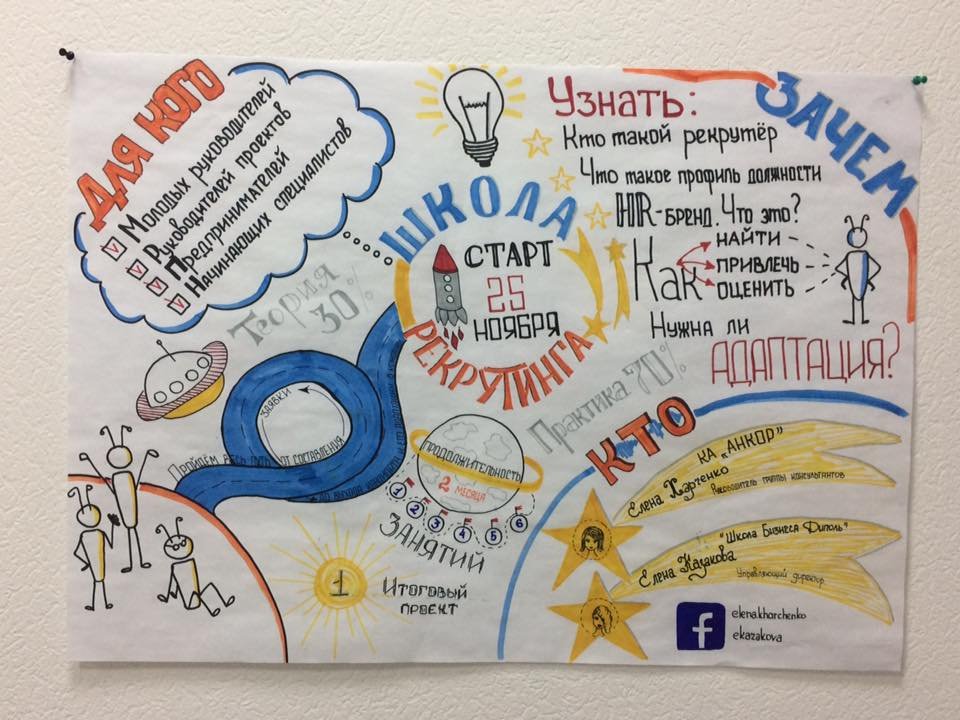 ДЛЯ КОГО
V Молодых руководителей
V Руководителей проектов
V Предпринимателей
V Начинающих специалистов
ШКОЛА
СТАРТ
25
НОЯБРЯ
РЕКРУТИНГА
ЗАЧЕМ
Узнать:
Кто такой рекрутёр
Что такое профиль должности
HR-бренд. Что это?
Как
НАЙТИ
ПРИВЛЕЧЬ
ОЦЕНИТЬ
Нужна ли
АДАПТАЦИЯ?
Теория
30%
Практика 70%
Пройдём весь путь от составления
ЗАЯВКИ
ПРОДОЛЖИТЕЛЬНОСТЬ
2 МЕСЯЦА
1 2 3 4 5 6
ЗАНЯТИЙ
1
Итоговый
проект
КТО
КА "АНКОР"
Елена Харченко
Руководитель группы консультантов
"Школа Бизнеса Диполь"
Елена Казакова
Управляющий директор
f
elena.kharchenko
ekazakova